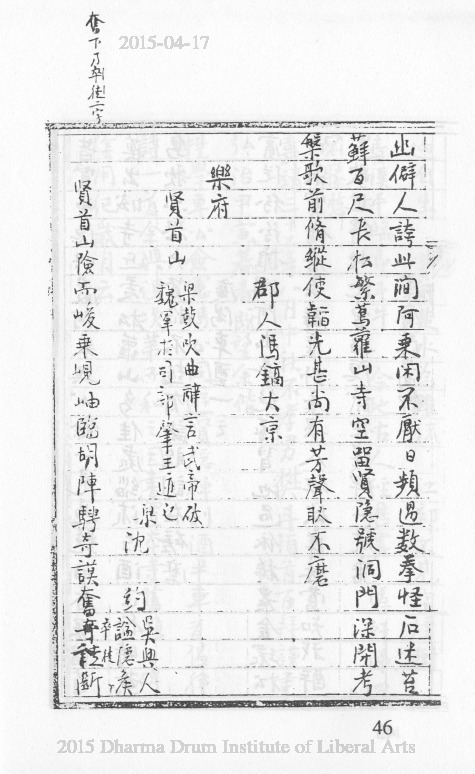 奮下乃卒徒二字
2015-04-17
幽僻人誇此澗阿乘閑不厭日頻過數拳怪石迷苔
蘚百尺長松繁蔦蘿山寺空留賢隱號洞門深閉考
槃歌前脩縱使韜光甚尚有芳聲耿不磨
郡人馮鎬大京
樂府
賢首山
梁鼓吹曲辭言武帝破
魏軍於司部肇王迹也
梁沈約
吳興人
諡隱侯
賢首山險而峻乘峴岫臨胡陣騁奇謨奮卒徒斷
46
2015 Dharma Drum Institute of Liberal Arts